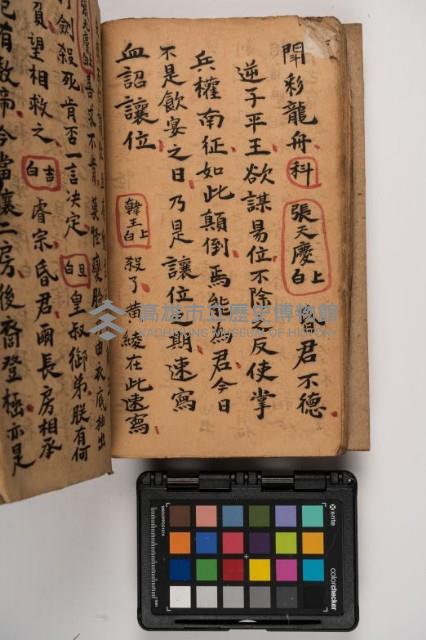 鬥彩龍舟科 張天慶上白 昏君不德
逆子平王欲謀易位不除之反使掌
兵權南征如此顛倒焉能為君今日
不是飲宴之日乃是讓位之期速寫
血詔讓位 韓王上白 殺了黃綾在此速寫
劍殺死肯否一言決定 旦白 皇叔御弟朕有何
負望相救之 吉白 睿宗昏君爾長房相承
已有數帝今當讓二房後裔登極亦是
高雄市立歷史博物館
KAOHSIUNG MUSEUM OF HISTORY
x-rite
colorchecker